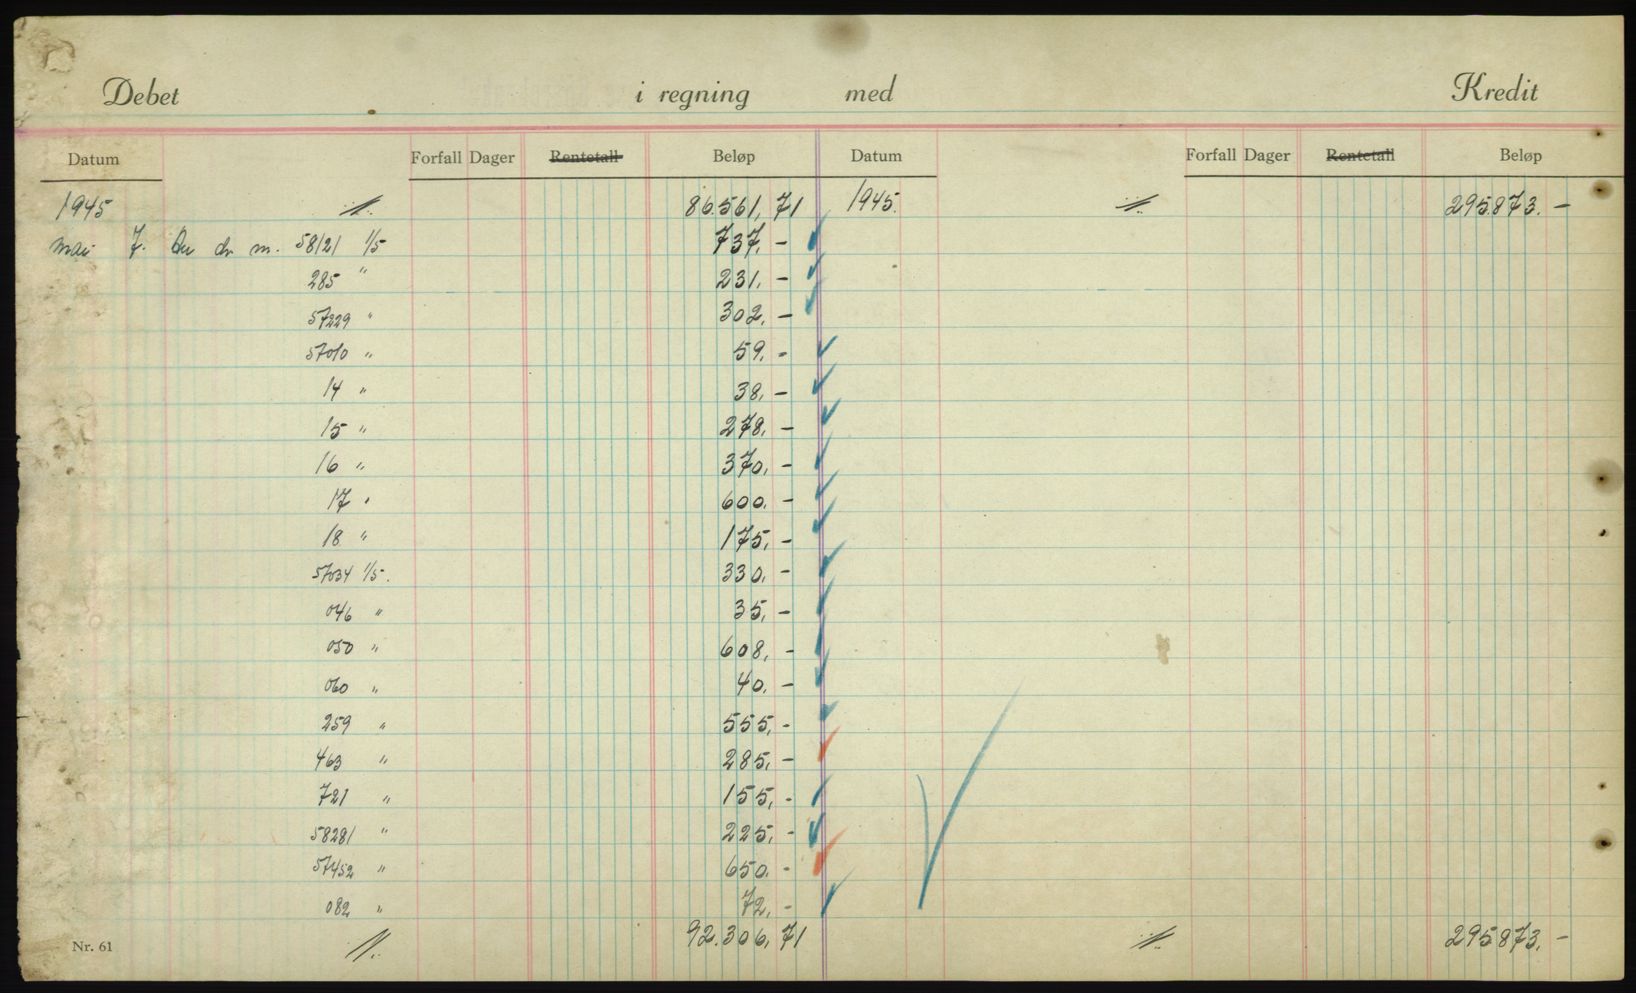 Debet i regning med Kredit
Datum Forfall Dager Rentetall Beløp Datum Forfall Dager Rentetall Beløp
1945 86.561,71 1945. 295.873.-
mai 7. m. 58121 1/5 737,-
285 " 231.-
57229 " 302,-
57010 " 59.-
14 " 38,-
15 " 278,-
16 " 370,-
17 " 600.-
18 " 175,-
57034 1/5. 330,-
046 " 35,-
050 " 608,-
060 " 40.-
259 " 555,-
463 " 285,-
721 " 155,-
58281 " 225,-
57452 " 650.-
082 " 72,-
Nr. 61 92.306,71 295.873.-